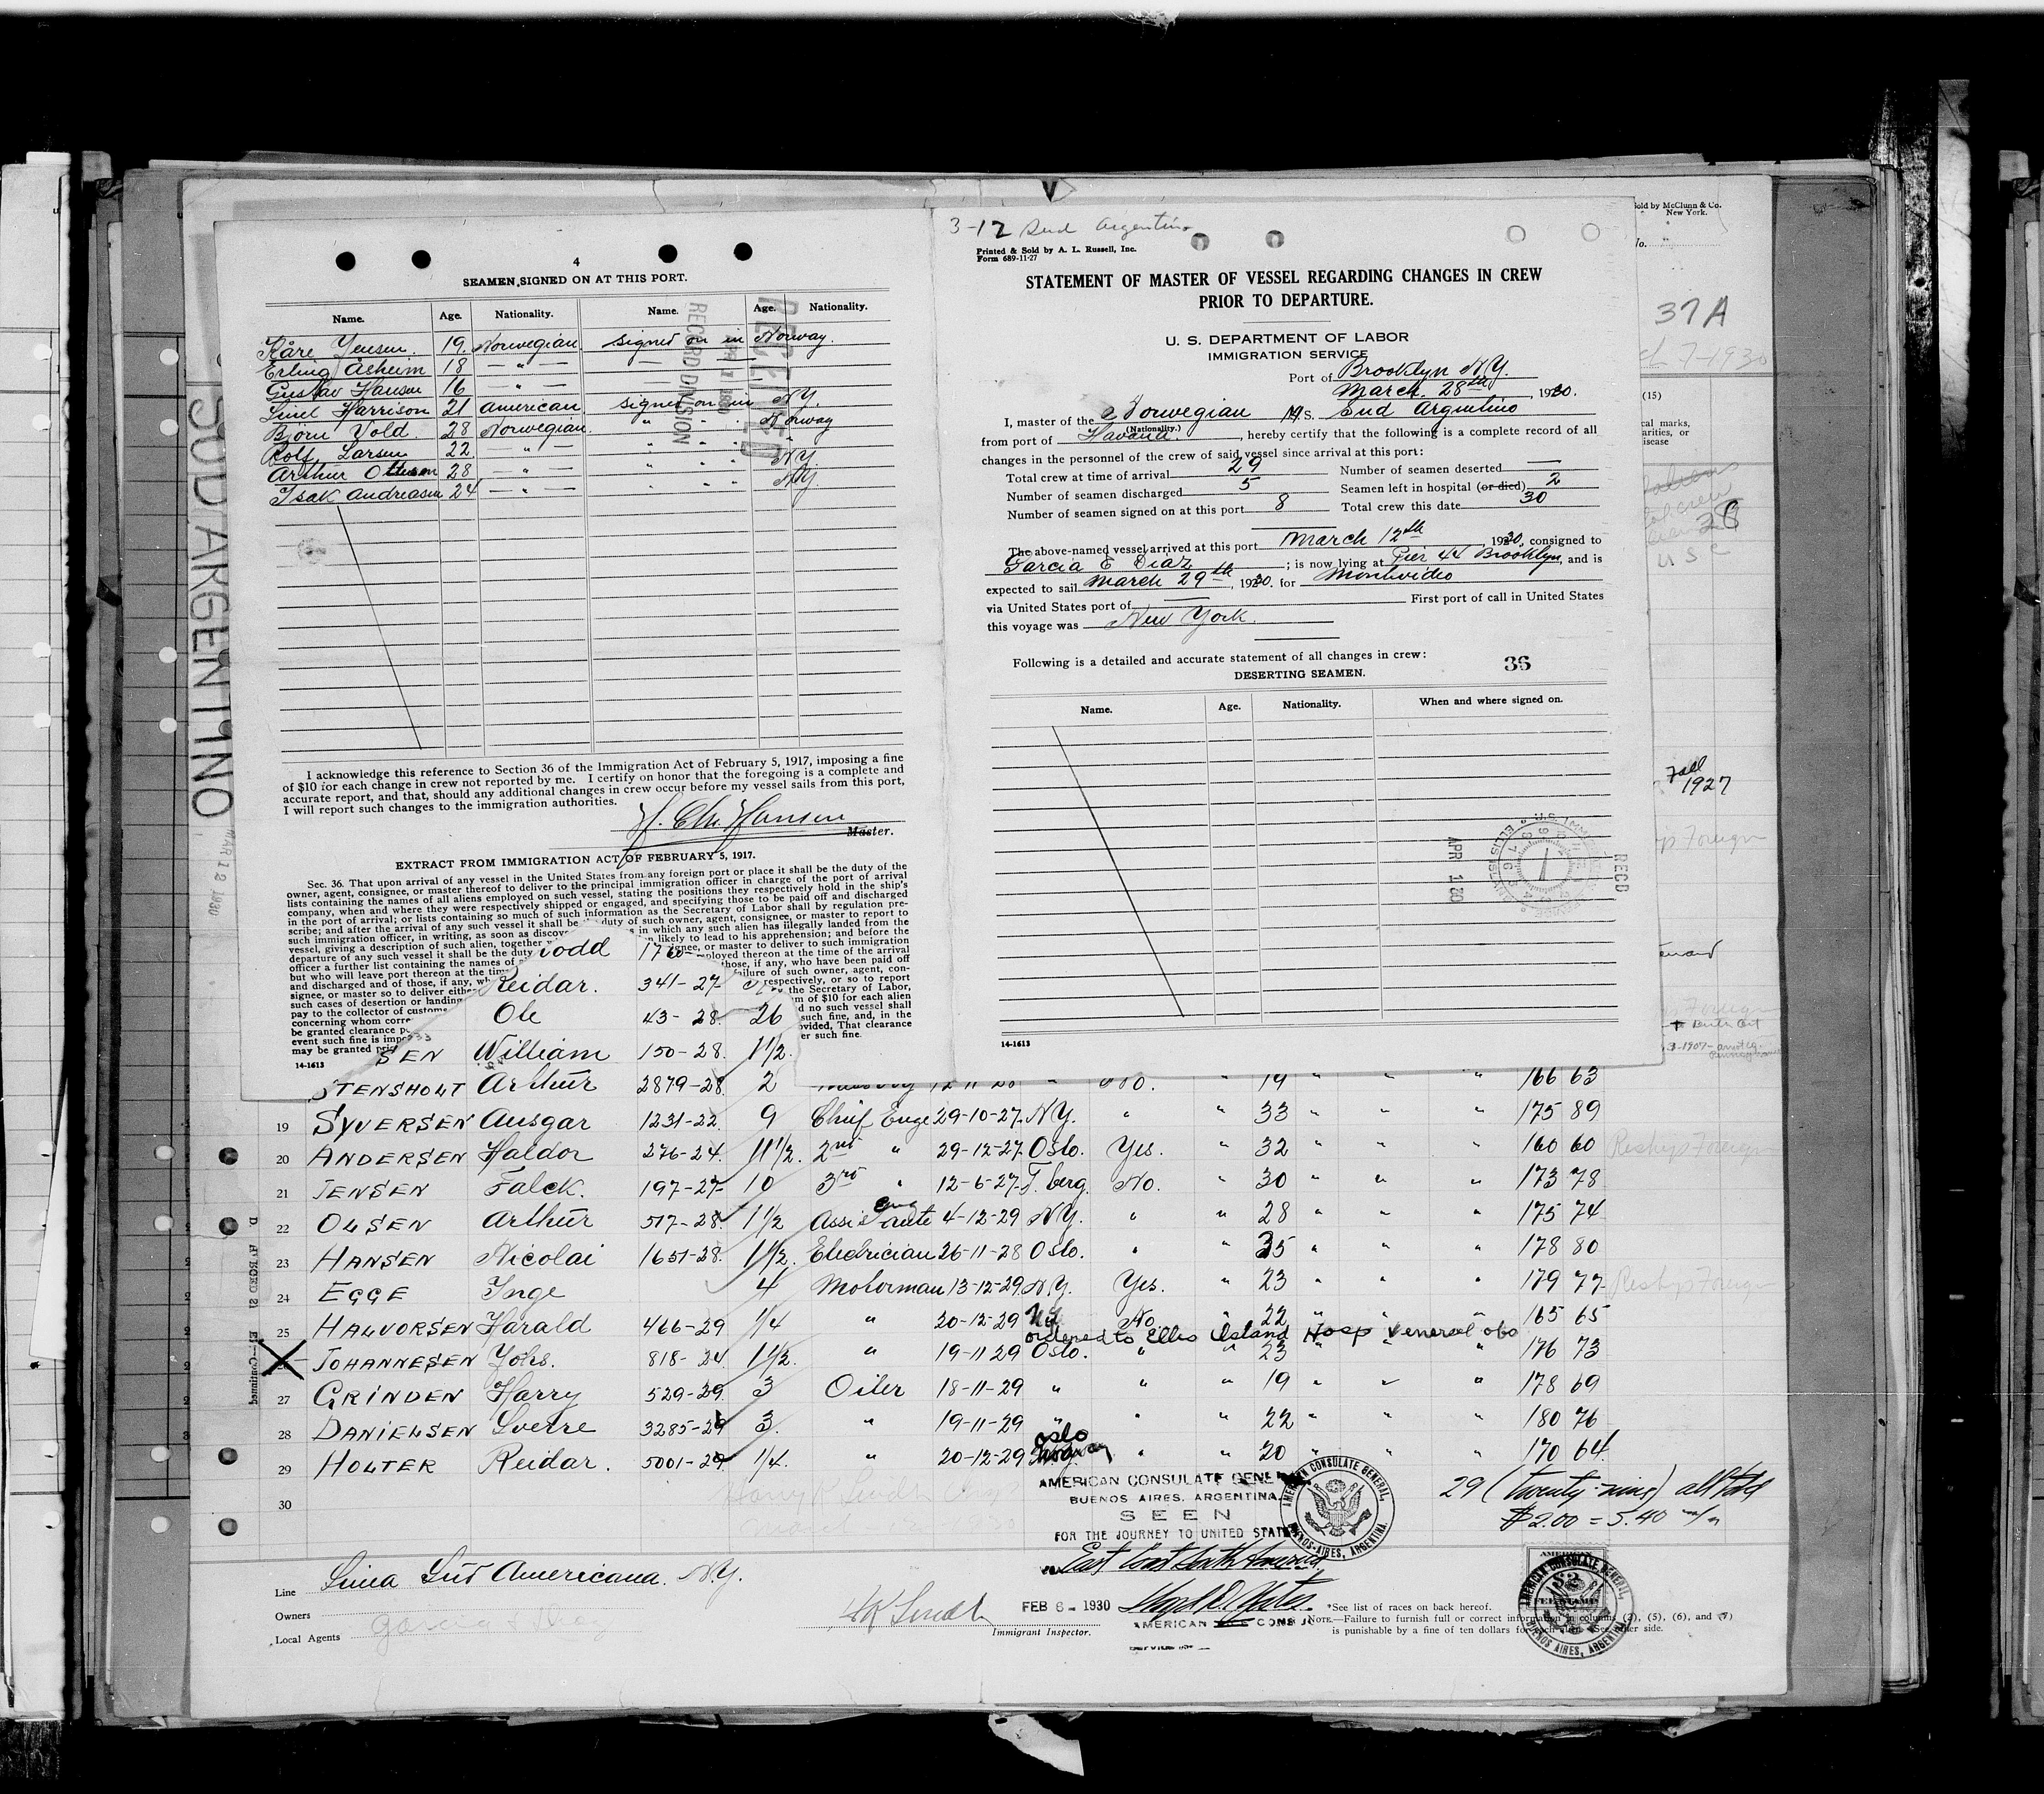 4
SEAMEN SIGNED ON AT THIS PORT.
Name. Age. Nationality. Name. Age. Nationality.
Kåre Jensen. 19. Norwegian signed on in Norway.
Erling Åsheim 18 — " —
Gustav Hansen 16 — " —
Harrison 21 American signed on in N.Y.
Bjørn Vold. 28 Norwegian. " " " Norway
Rolf Larsen 22 — " — " " " "
Arthur Ottesen 28 — " — " " " N.Y
Isak Andreasen 24 — " — " " " N.Y
RECEIVED
APR 1 1930
RECORD DIVISION
I acknowledge this reference to Section 36 of the Immigration Act of February 5, 1917, imposing a fine
of $10 for each change in crew not reported by me. I certify on honor that the foregoing is a complete and
accurate report, and that, should any additional changes in crew occur before my vessel sails from this port,
I will report such changes to the immigration authorities.
Hansen
Master.
EXTRACT FROM IMMIGRATION ACT OF FEBRUARY 5, 1917.
Sec. 36. That upon arrival of any vessel in the United States from any foreign port or place it shall be the duty of the
owner, agent, consignee, or master thereof to deliver to the principal immigration officer in charge of the port of arrival
lists containing the names of all aliens employed on such vessel, stating the positions they respectively hold in the ship's
company, when and where they were respectively shipped or engaged, and specifying those to be paid off and discharged
in the port of arrival; or lists containing so much of such information as the Secretary of Labor shall by regulation pre-
scribe; and after the arrival of any such vessel it shall be the duty of such owner, agent, consignee, or master to report to
such immigration officer, in writing, as soon as discove s in which any such alien has illegally landed from the
vessel, giving a description of such alien, together n likely to lead to his apprehension; and before the
departure of any such vessel it shall be the duty ignee, or master to deliver to such immigration
officer a further list containing the names of ployed thereon at the time of the arrival
but who will leave port thereon at the tim those, if any, who have been paid off
and discharged and of those, if any, wh failure of such owner, agent, con-
signee, or master so to deliver eithe respectively, or so to report
such cases of desertion or landing the Secretary of Labor,
pay to the collector of customs m of $10 for each alien
concerning whom corre d no such vessel shall
be granted clearance p such fine, and, in the
event such fine is impo ovided, That clearance
may be granted pri er such fine.
14-1613
3-12 Sud Argentino
Printed & Sold by A. L. Russell, Inc.
Form 689-11-27
STATEMENT OF MASTER OF VESSEL REGARDING CHANGES IN CREW
PRIOR TO DEPARTURE.
U. S. DEPARTMENT OF LABOR
IMMIGRATION SERVICE
Port of Brooklyn N.Y.
March 28th, 1930.
I, master of the Norwegian M.S. Sud Argentino
(Nationality.)
from port of Havana, hereby certify that the following is a complete record of all
changes in the personnel of the crew of said vessel since arrival at this port:
Total crew at time of arrival 29 Number of seamen deserted —
Number of seamen discharged 5 Seamen left in hospital (or died) 2
Number of seamen signed on at this port 8 Total crew this date 30
The above-named vessel arrived at this port March 12th, 1930, consigned to
Garcia & Diaz; is now lying at Pier 44 Brooklyn, and is
expected to sail March 29th, 1930. for Montevideo
via United States port of — First port of call in United States
this voyage was New York.
Following is a detailed and accurate statement of all changes in crew:
36
DESERTING SEAMEN.
Name. Age. Nationality. When and where signed on.
APR 1 30
REC'D
14-1613
Sold by McClunn & Co.
New York.
No.
37A
7-1930
(15)
cal marks,
arities, or
isease
38
U S C
Fall
1927
SUD ARGENTINO
MAR 12 1930
todd
Reidar. 341-27
Ole 43-28 26
SEN William 150-28. 1 1/2.
STENSHOLT Arthur 2879-28 2 12-11-28 " No. " 19 " " " 166 63
19 SYVERSEN Ansgar 1231-22. 9 Chief Enge 29-10-27. N.Y. " " 33 " " " 175 89
20 ANDERSEN Haldor 276-24. 11 1/2. 2nd " 29-12-27. Oslo. Yes. " 32 " " 160 60 Reships Foreign
21 JENSEN Falck. 197-27 10 3rd " 12-6-27. T.berg. No. " 30 " " " 173 78
22 OLSEN Arthur 517-28. 1 1/2 Assis eng 4-12-29 N.Y. " " 28 " " " 175 74
23 HANSEN Nicolai 1651-28. 1 1/2. Electrician 26-11-28 Oslo. " " 35 " " " 178 80
24 EGGE Inge 4 Motorman 13-12-29. N.Y. Yes. " 23 " " " 179 77 Reships Foreign
25 HALVORSEN Harald 466-29 1/4 " 20-12-29 N.Y. No " 22 " " " 165 65
ordered to Ellis Island Hosp Venereal obs
JOHANNESEN Johs. 818-24 1 1/2. " 19-11 29 Oslo. " " 23 " " " 176 73
27 GRINDEN Harry 529-29. 3 Oiler 18-11-29 " " " 19 " " " 178 69
28 DANIELSEN Sverre 3285-29 3. " 19-11-29 " " " 22 " " " 180 76
29 HOLTER Reidar. 5001-29 1/4. " 20-12-29 Oslo " " 20 " " " 170 64.
30
29 (twenty-nine) all told
$2.00 = 5.40 m/n
AMERICAN CONSULATE GENERAL
BUENOS AIRES, ARGENTINA.
SEEN
FOR THE JOURNEY TO UNITED STATES
AMERICAN CONSULATE GENERAL, BUENOS-AIRES, ARGENTINA.
East Coast South America
FEB 6 - 1930
AMERICAN VICE CONSUL
Line Linea Sud Americana. N.Y.
Owners
Local Agents Garcia & Diaz
Immigrant Inspector.
*See list of races on back hereof.
NOTE.—Failure to furnish full or correct information in columns (2), (5), (6), and (7)
is punishable by a fine of ten dollars for each alien. See other side.
AMERICAN CONSULATE GENERAL, BUENOS AIRES, ARGENTINA